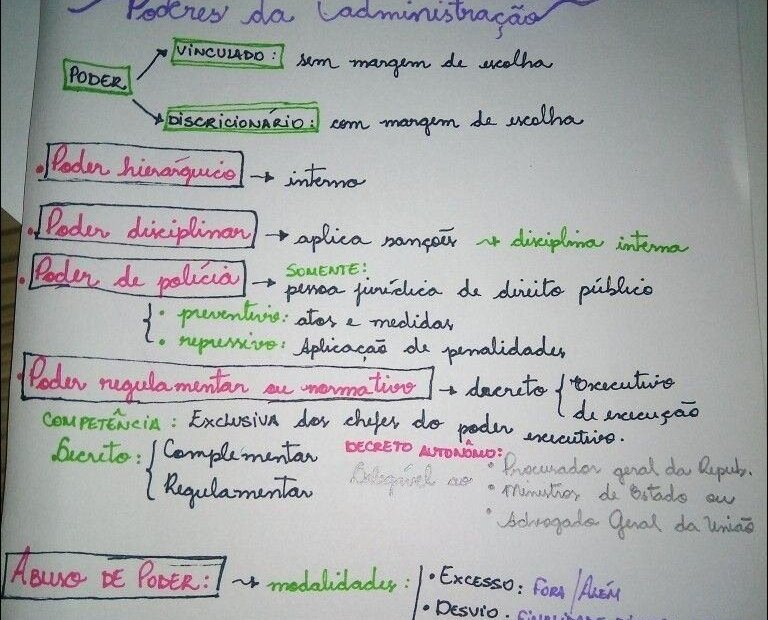 Poderes da Administração
PODER
VINCULADO: sem margem de escolha
DISCRICIONÁRIO: com margem de escolha
• Poder hierárquico → interno
• Poder disciplinar → aplica sanções → disciplina interna
• Poder de polícia → SOMENTE:
pessoa jurídica de direito público
• preventivo: atos e medidas
• repressivo: Aplicação de penalidades
• Poder regulamentar ou normativo → decreto { executivo
de execução
COMPETÊNCIA: EXCLUSIVA dos chefes do poder executivo.
Decreto: { Complementar
Regulamentar
DECRETO AUTONÔMO:
Delegável ao • Procurador geral da Repub.
• Ministros de Estado ou
• Advogado Geral da União
ABUSO DE PODER: → modalidades:
• EXCESSO: FORA/ALÉM
• DESVIO: